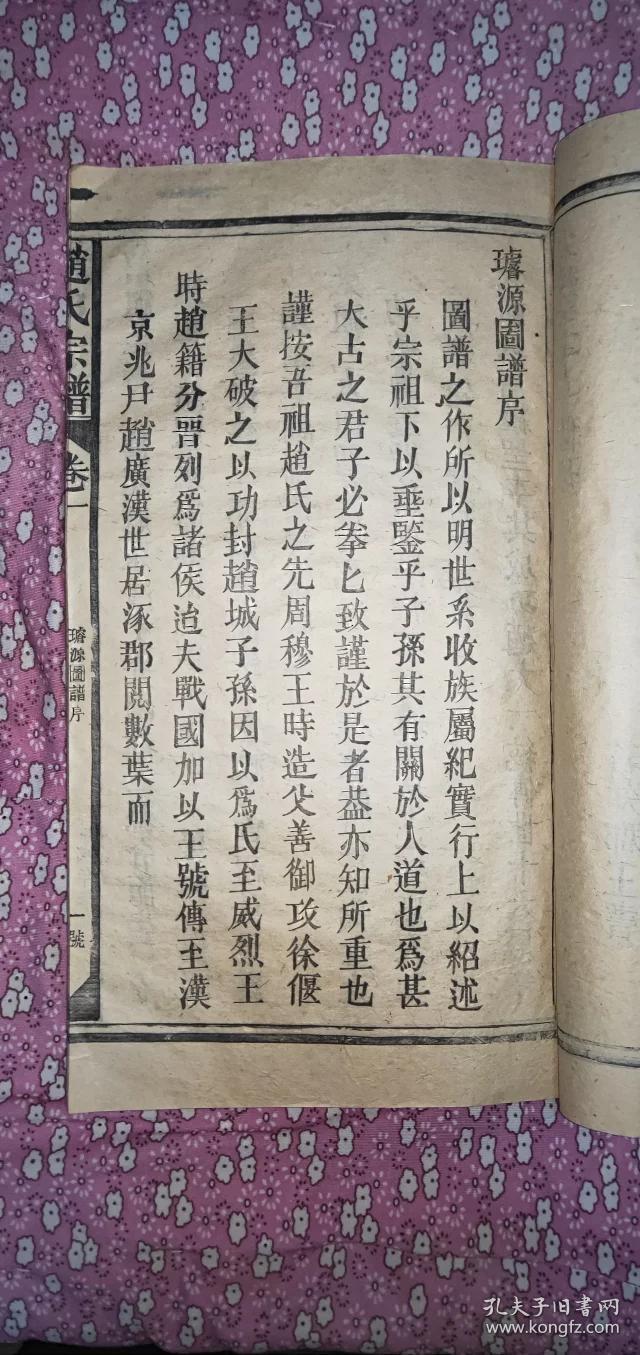 璿源圖譜序
圖譜之作所以明世系收族屬紀實行上以紹述
乎宗祖下以垂鑒乎子孫其有關於人道也爲甚
大古之君子必拳匕致謹於是者葢亦知所重也
謹按吾祖趙氏之先周穆王時造父善御攻徐偃
王大破之以功封趙城子孫因以爲氏至威烈王
時趙籍分晋列爲諸侯迨夫戰國加以王號傳至漢
京兆尹趙廣漢世居涿郡閱數葉而
趙氏宗譜
卷一
璿源圖譜序
一號
孔夫子旧书网
www.kongfz.com